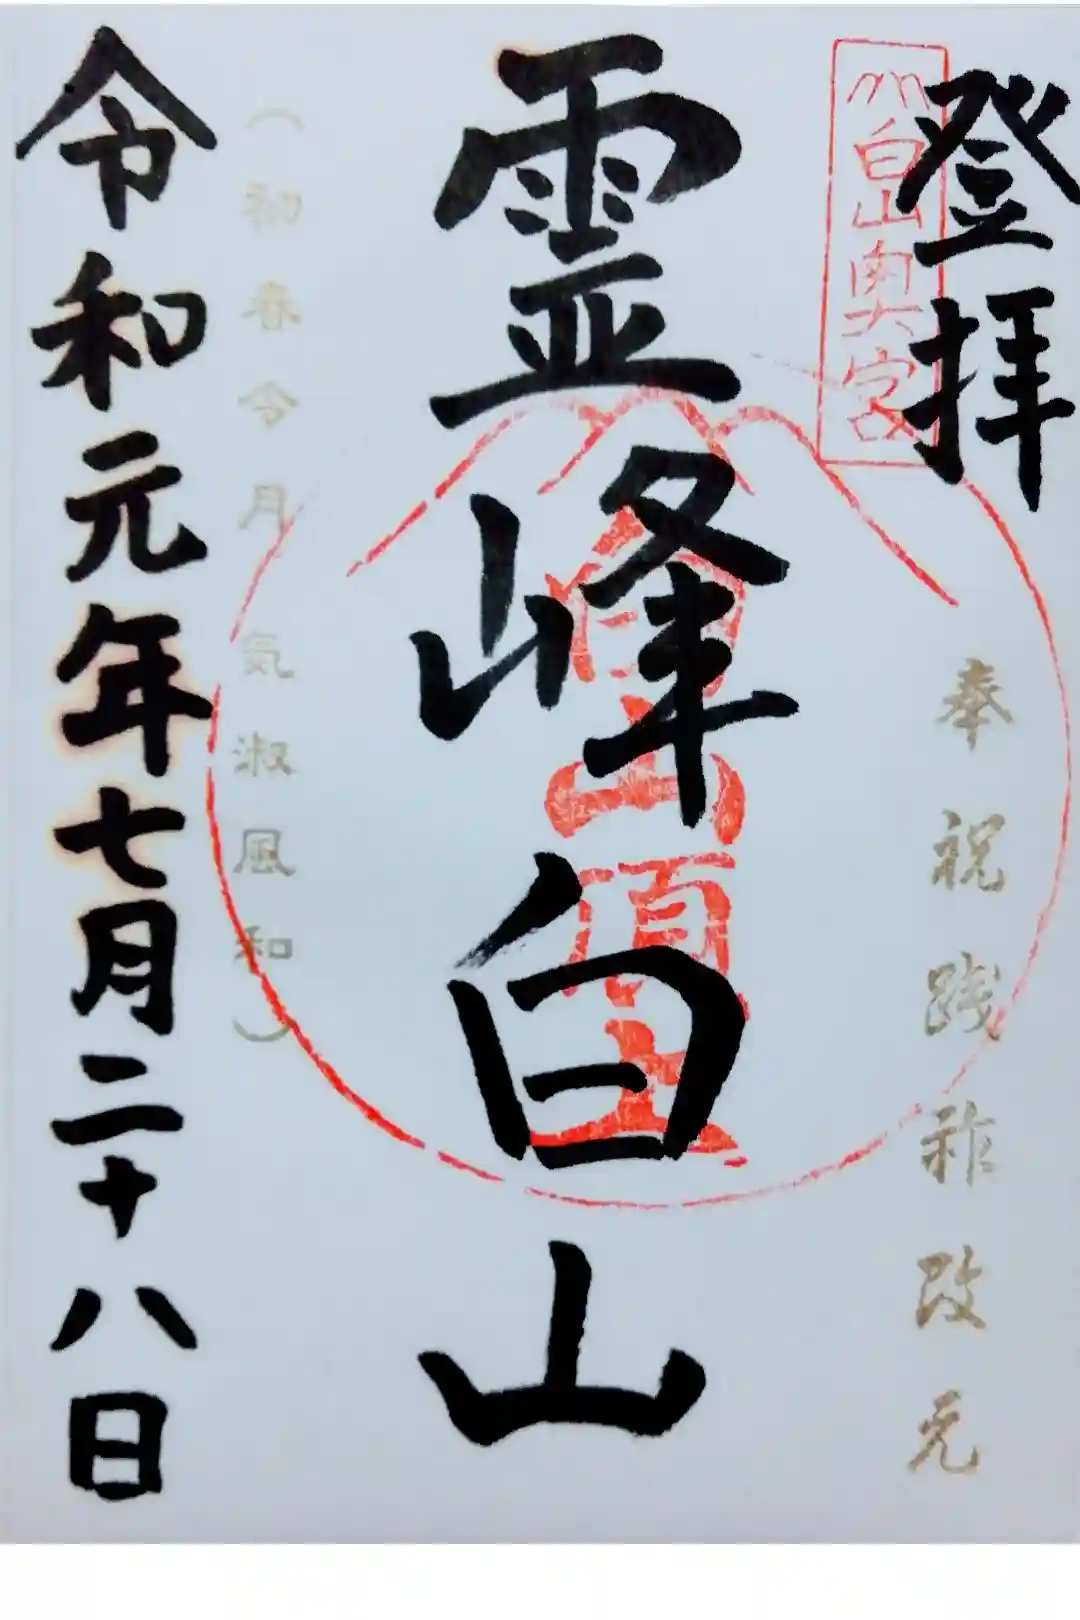 登拝
白山奥宮
奉祝践祚改元
霊峰白山
白山頂上
(初春令月 気淑風和)
令和元年七月二十八日